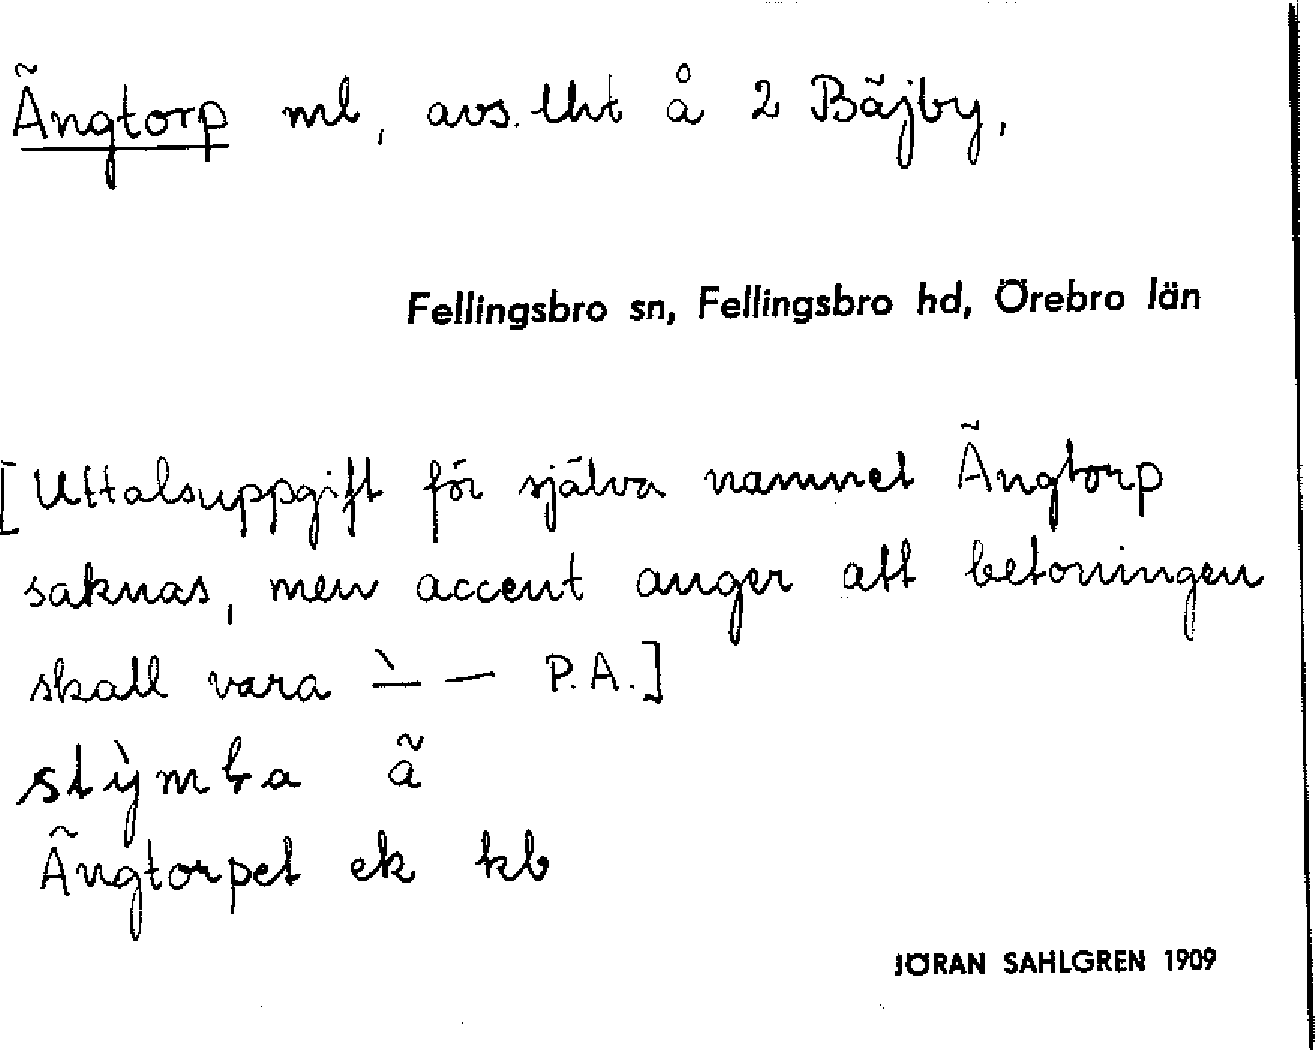 Ängtorp ml, avs. lht å 2 Bäjby,
Fellingsbro sn, Fellingsbro hd, Örebro län
[Uttalsuppgift för själva namnet Ängtorp
saknas, men accent anger att betoningen
skall vara ̀— — P.A.]
stỳmba ä
Ängtorpet ek kb
JÖRAN SAHLGREN 1909